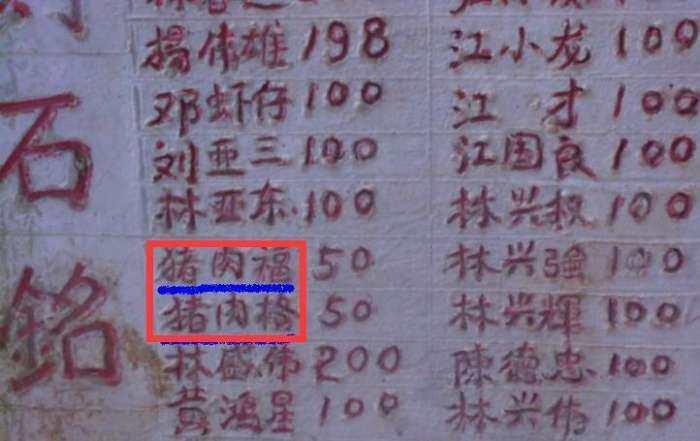 石
銘
楊偉雄 198 江小龙 100
邓虾仔 100 江 才 100
刘亚三 100 江国良 100
林亚东 100 林兴权 100
猪肉福 50 林兴強 100
猪肉 50 林兴輝 100
林盛伟 200 陳德忠 100
黄鴻星 100 林兴伟 100